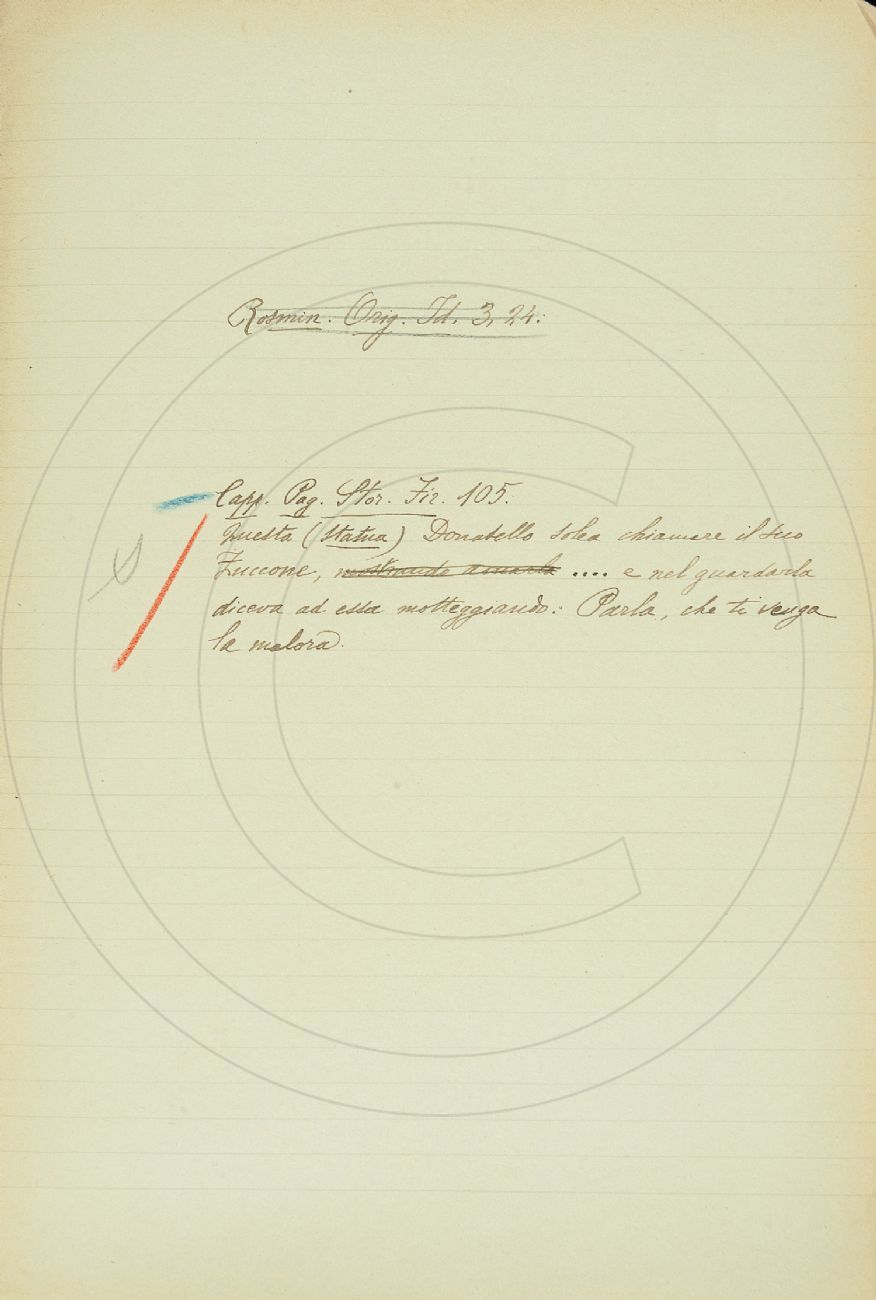 Rosmin. Orig. Id. 3, 24:
Capp. Pag. Stor. Fir. 105.
Questa (statua) Donatello solea chiamare il suo
Zuccone, mostrando amarla .... e nel guardarla
diceva ad essa motteggiando: Parla, che ti venga
la malora.